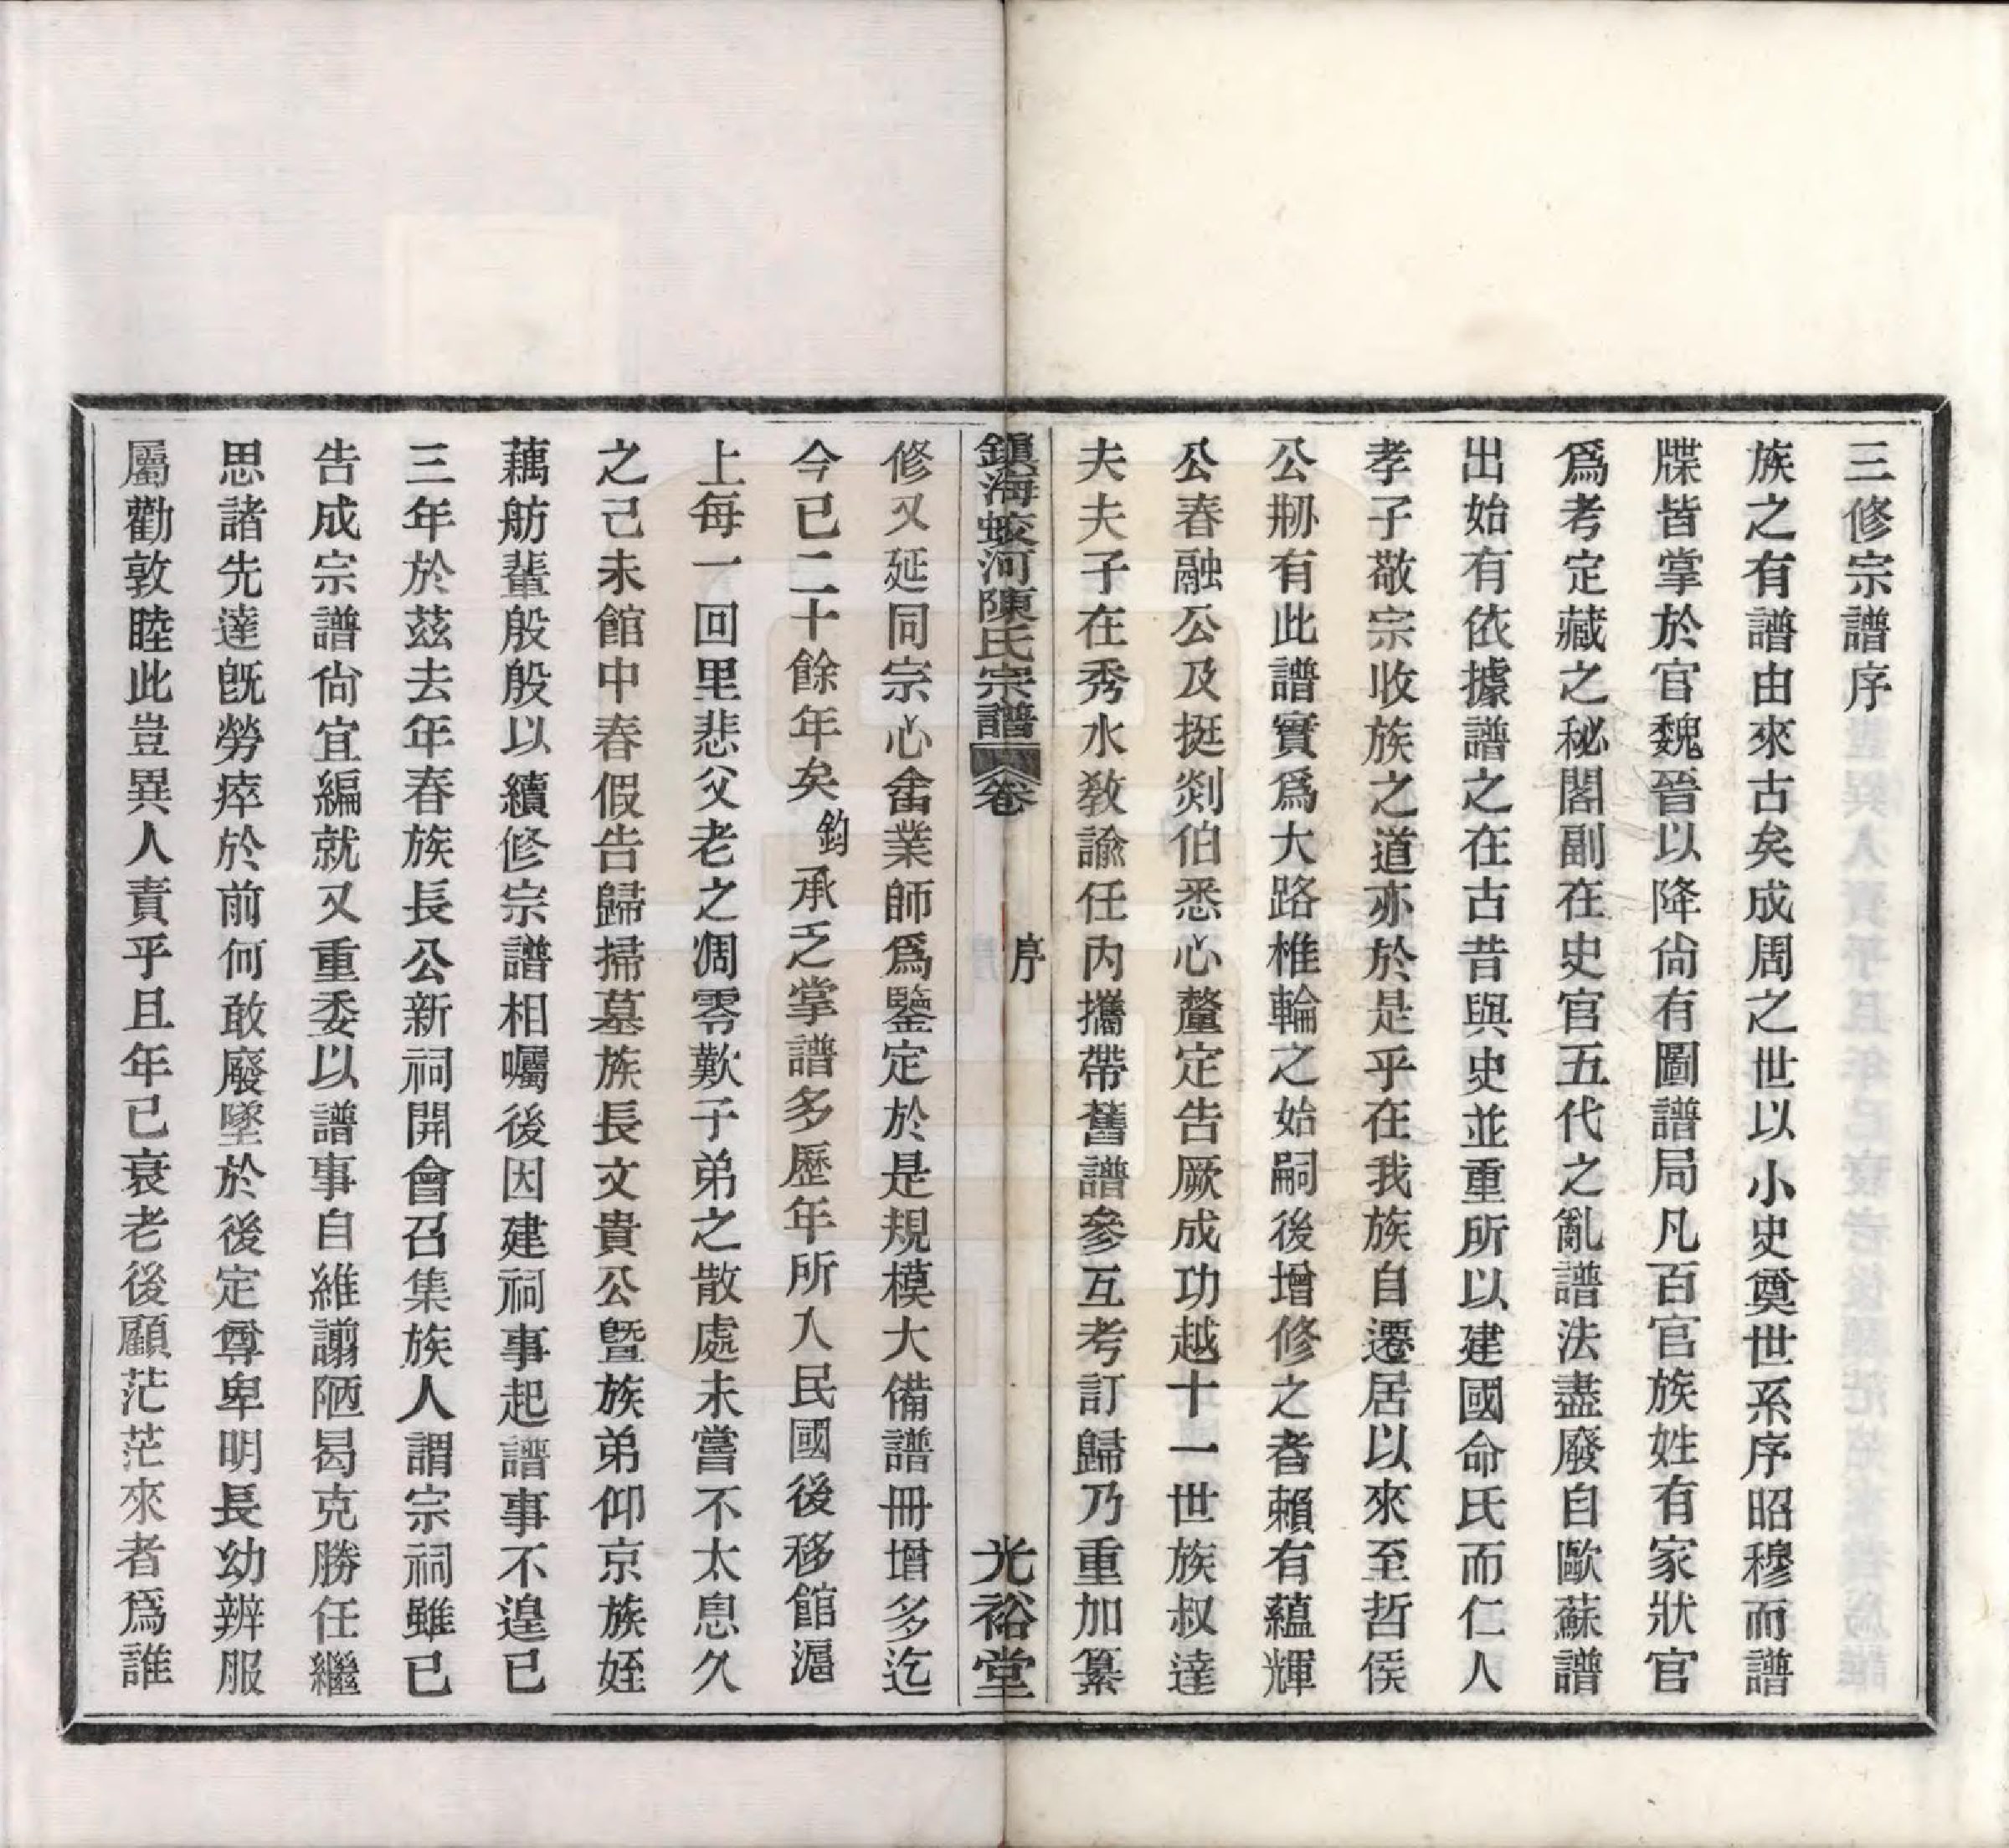 三修宗譜序
族之有譜由來古矣成周之世以小史奠世系序昭穆而譜
牒皆掌於官魏晉以降尙有圖譜局凡百官族姓有家狀官
爲考定藏之秘閣副在史官五代之亂譜法盡廢自歐蘇譜
出始有依據譜之在古昔與史並重所以建國命氏而仁人
孝子敬宗收族之道亦於是乎在我族自遷居以來至哲侯
公剏有此譜實爲大路椎輪之始嗣後增修之者賴有蘊輝
公春融公及挺剡伯悉心釐定告厥成功越十一世族叔達
夫夫子在秀水敎諭任內攜帶舊譜參互考訂歸乃重加纂
鎭海蛟河陳氏宗譜 卷 序 光裕堂
修又延同宗心畬業師爲鑒定於是規模大備譜冊增多迄
今已二十餘年矣鈞承乏掌譜多歷年所入民國後移館滬
上每一回里悲父老之凋零歎子弟之散處未嘗不太息久
之己未館中春假告歸掃墓族長文貴公曁族弟仰京族姪
藕舫輩殷殷以續修宗譜相囑後因建祠事起譜事不遑已
三年於茲去年春族長公新祠開會召集族人謂宗祠雖已
告成宗譜尙宜編就又重委以譜事自維謭陋曷克勝任繼
思諸先達旣勞瘁於前何敢廢墜於後定尊卑明長幼辨服
屬勸敦睦此豈異人責乎且年已衰老後顧茫茫來者爲誰